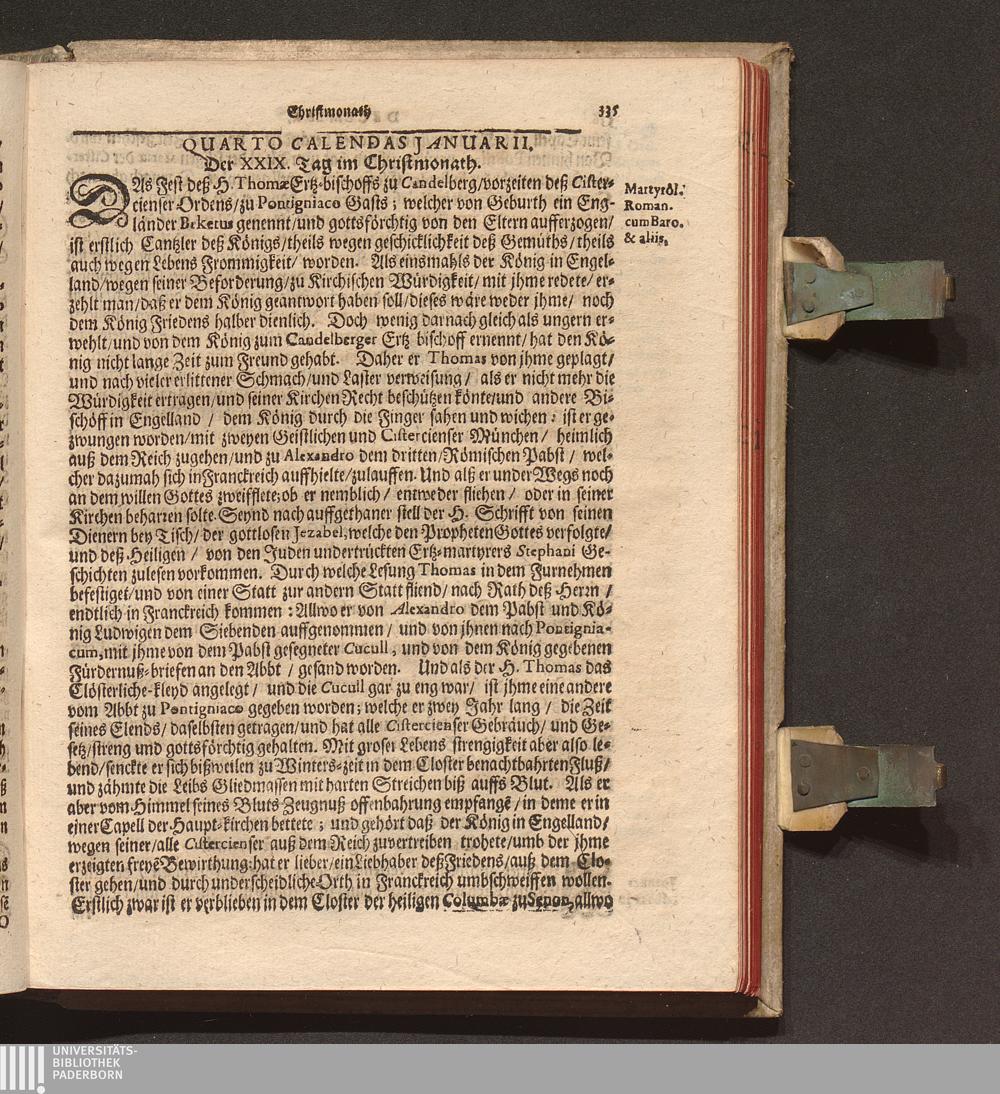 Christmonath 335
QUARTO CALENDAS JANUARII.
Der XXIX. Tag im Christmonath.
DAs Fest deß H. Thomæ Ertz-bischoffs zu Candelberg/vorzeiten deß Cister-
cienser-Ordens/zu Pontigniaco Gasts; welcher von Geburth ein Eng-
länder Beketus genennt/und gottsförchtig von den Eltern aufferzogen/
ist erstlich Cantzler deß Königs/theils wegen geschicklichkeit deß Gemüths/theils
auch wegen Lebens Frommigkeit/ worden. Als einsmahls der König in Engel-
land/wegen seiner Beforderung/zu Kirchischen Würdigkeit/ mit jhme redete/ er-
zehlt man/daß er dem König geantwort haben soll/dieses wäre weder jhme/ noch
dem König Friedens halber dienlich. Doch wenig darnach gleich als ungern er-
wehlt/und von dem König zum Candelberger Ertz bischoff ernennt/ hat den Kö-
nig nicht lange Zeit zum Freund gehabt. Daher er Thomas von jhme geplagt/
und nach vieler erlittener Schmach/und Laster verweisung/ als er nicht mehr die
Würdigkeit ertragen/und seiner Kirchen Recht beschützen könte/und andere Bi-
schöff in Engelland / dem König durch die Finger sahen und wichen: ist er ge-
zwungen worden/mit zweyen Geistlichen und Cistercienser München/ heimlich
auß dem Reich zugehen/und zu Alexandro dem dritten/Römischen Pabst / wel-
cher dazumah sich in Franckreich auffhielte/zulauffen. Und alß er under Wegs noch
an dem willen Gottes zweifflete; ob er nemblich/ entweder fliehen/ oder in seiner
Kirchen beharren solte. Seynd nach auffgethaner stell der H. Schrifft von seinen
Dienern bey Tisch/ der gottlosen Jezabel, welche den Propheten Gottes verfolgte/
und deß Heiligen / von den Juden undertrückten Ertz-martyrers Stephani Ge-
schichten zulesen vorkommen. Durch welche Lesung Thomas in dem Furnehmen
befestiget/und von einer Statt zur andern Statt fliend/ nach Rath deß Herrn/
endtlich in Franckreich kommen: Allwo er von Alexandro dem Pabst und Kö-
nig Ludwigen dem Siebenden auffgenommen/ und von jhnen nach Pontignia-
cum, mit jhme von dem Pabst gesegneter Cucull, und von dem König gegebenen
Fürdernuß-briefen an den Abbt / gesand worden. Und als der H. Thomas das
Clösterliche-kleyd angelegt/ und die Cucull gar zu eng war/ ist jhme eine andere
vom Abbt zu Pontigniaco gegeben worden; welche er zwey Jahr lang / die Zeit
seines Elends/ daselbsten getragen/und hat alle Cistercienser Gebräuch/ und Ge-
setz/streng und gottsförchtig gehalten. Mit groser Lebens strengigkeit aber also le-
bend/senckte er sich bißweilen zu Winters-zeit in dem Closter benachtbahrten Fluß/
und zähmte die Leibs Gliedmassen mit harten Streichen biß auffs Blut. Als er
aber vom Himmel seines Bluts Zeugnuß offenbahrung empfangē/in deme er in
einer Capell der Haupt-kirchen bettete; und gehört daß der König in Engelland/
wegen seiner/alle Cistercienser auß dem Reich zuvertreiben trohete/umb der jhme
erzeigten freyē Bewirthung: hat er lieber/ein Liebhaber deß Friedens/auß dem Clo-
ster gehen/und durch underscheidliche Orth in Franckreich umbschweiffen wollen.
Erstlich zwar ist er verblieben in dem Closter der heiligen Columbæ zu Senon, allwo
Martyrol.
Roman.
cum Baro.
& aliis.
UNIVERSITÄTS-
BIBLIOTHEK
PADERBORN